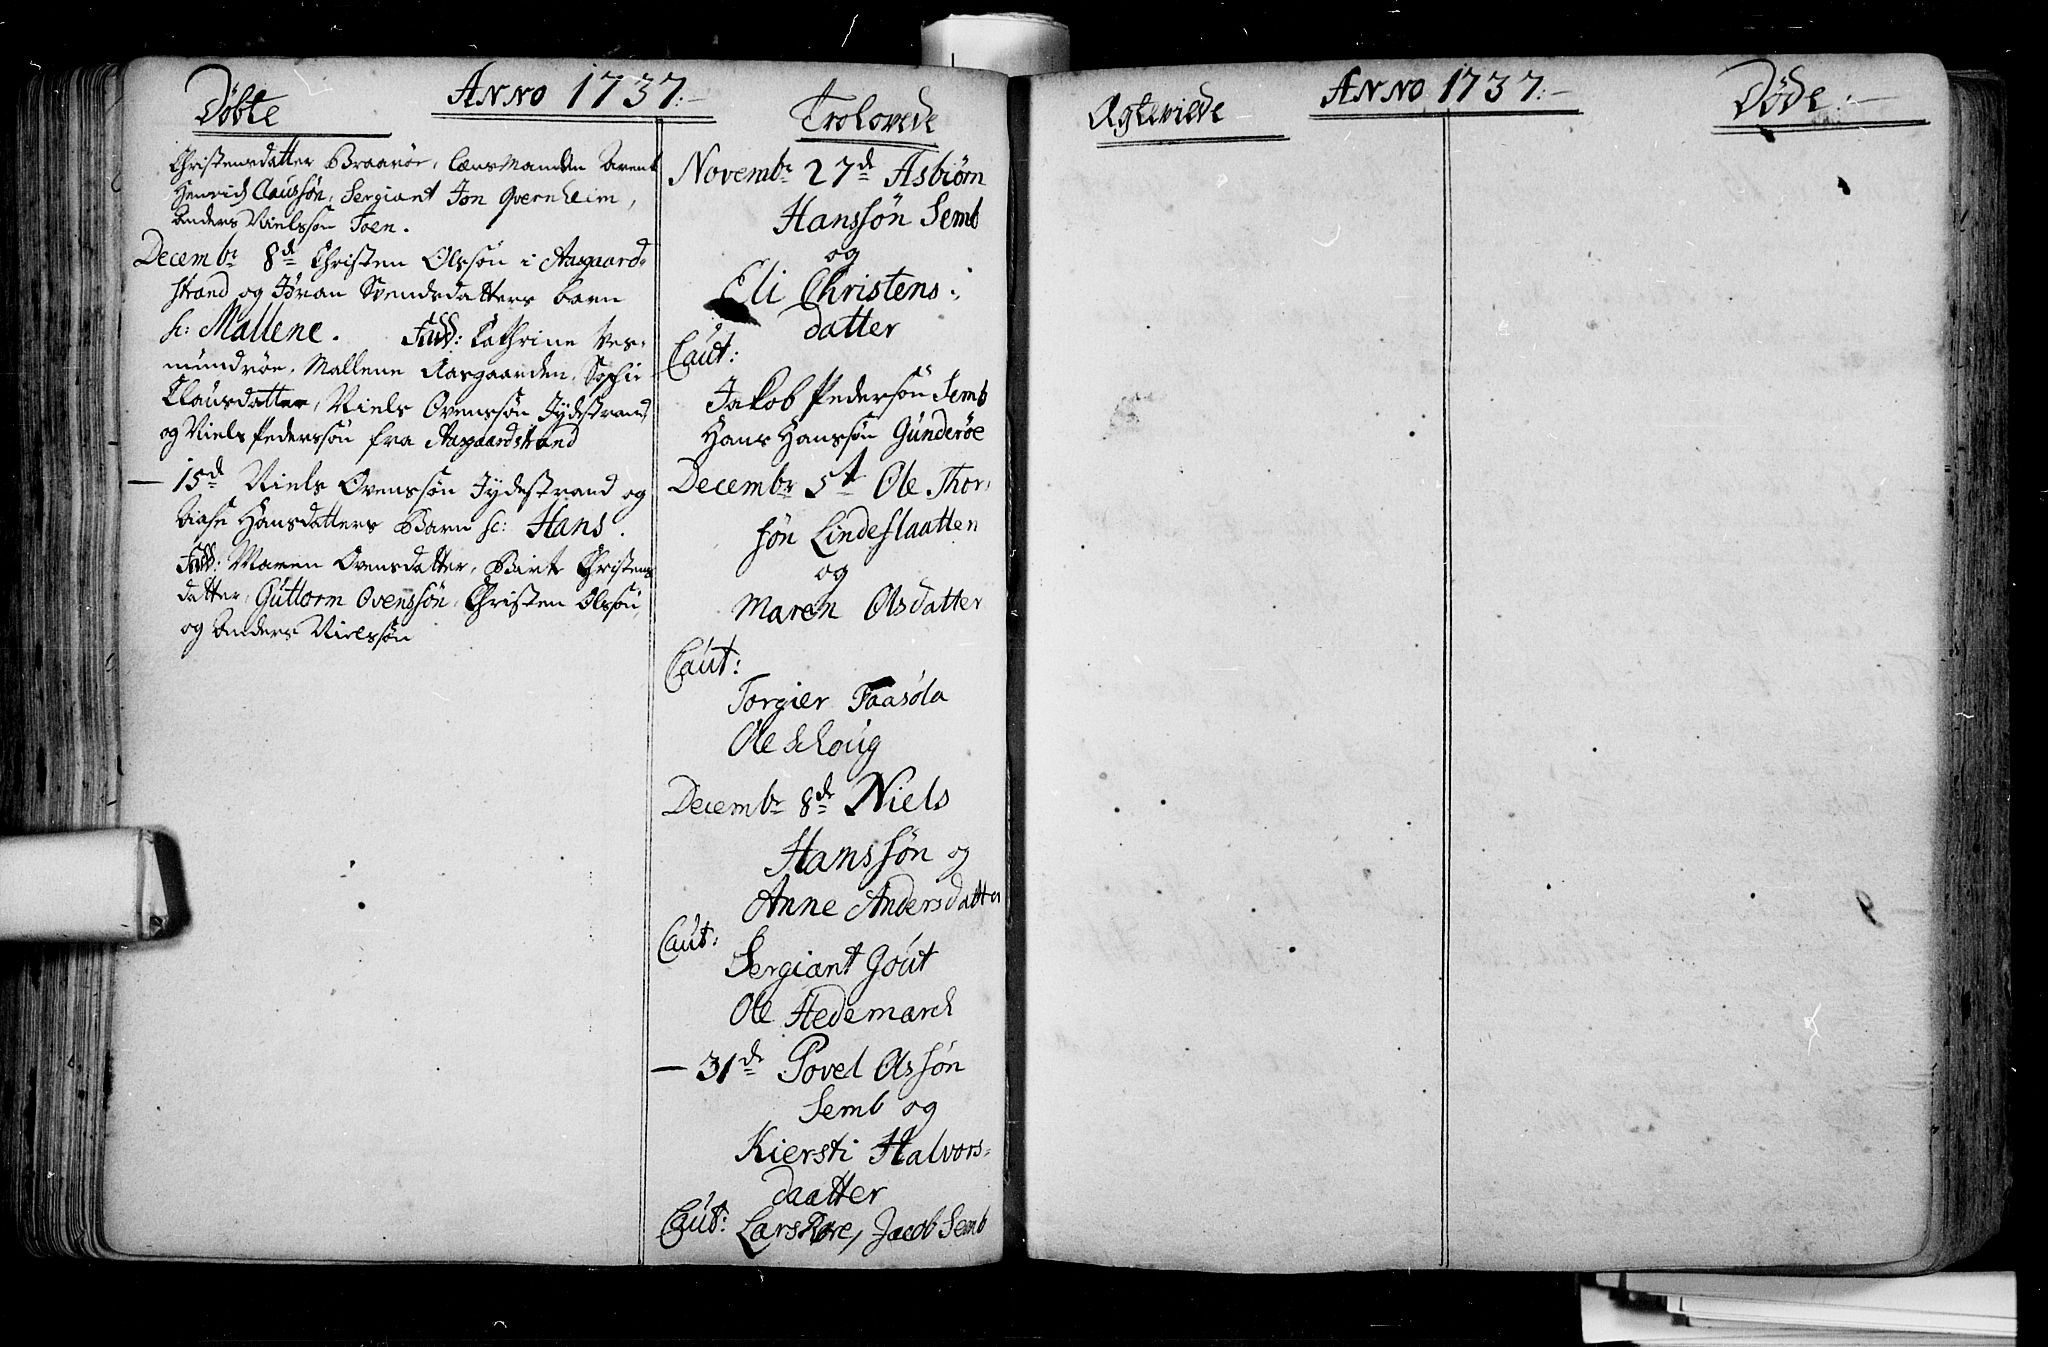 Anno 1737:-
Døbte
Christensdatter Braarøe, Lænsmanden Arent
Henrich Claussøn, Sergiant Jon Qvernheim,
Anders Nielssøn Foen.
Decembr 8de Christen Olssøn i Aasgaard-
strand og Jøran Svendsdatters barn
k: Mallene. Fadd: Cathrine Ves-
mundrøe, Mallene Aasgaarden, Sophie
Clausdatter, Niels Ovenssøn Jydestrand
og Niels Pederssøn fra Aasgaardstrand
— 15de Niels Ovenssøn Jydestrand og
Hansdatters Barn k: Hans.
Fadd: Maren Ovensdatter, Birte Christens
datter, Guttorm Ovenssøn, Christen Olssøn,
og Anders Nielssøn
Trolovede
Novembr 27de Asbiørn
Hanssøn Semb
og
Eli Christens:
datter
Caut:
Jakob Pedersøn Semb
Hans Hanssøn Gunderøe
Decembr 5t Ole Thor-
søn Lindeslaatten
og
Maren Olsdatter
Caut:
Torgier Faasøla
Ole Schoug
Decembr 8de Niels
Hanssøn og
Anne Andersdatter
Caut:
Sergiant Gout
Ole Hedemarch
— 31de Povel Olssøn
Semb og
Kiersti Halvors-
daatter
Caut: Lars Røre, Jacob Semb
Anno 1737:-
Ægteviede
Døde:-